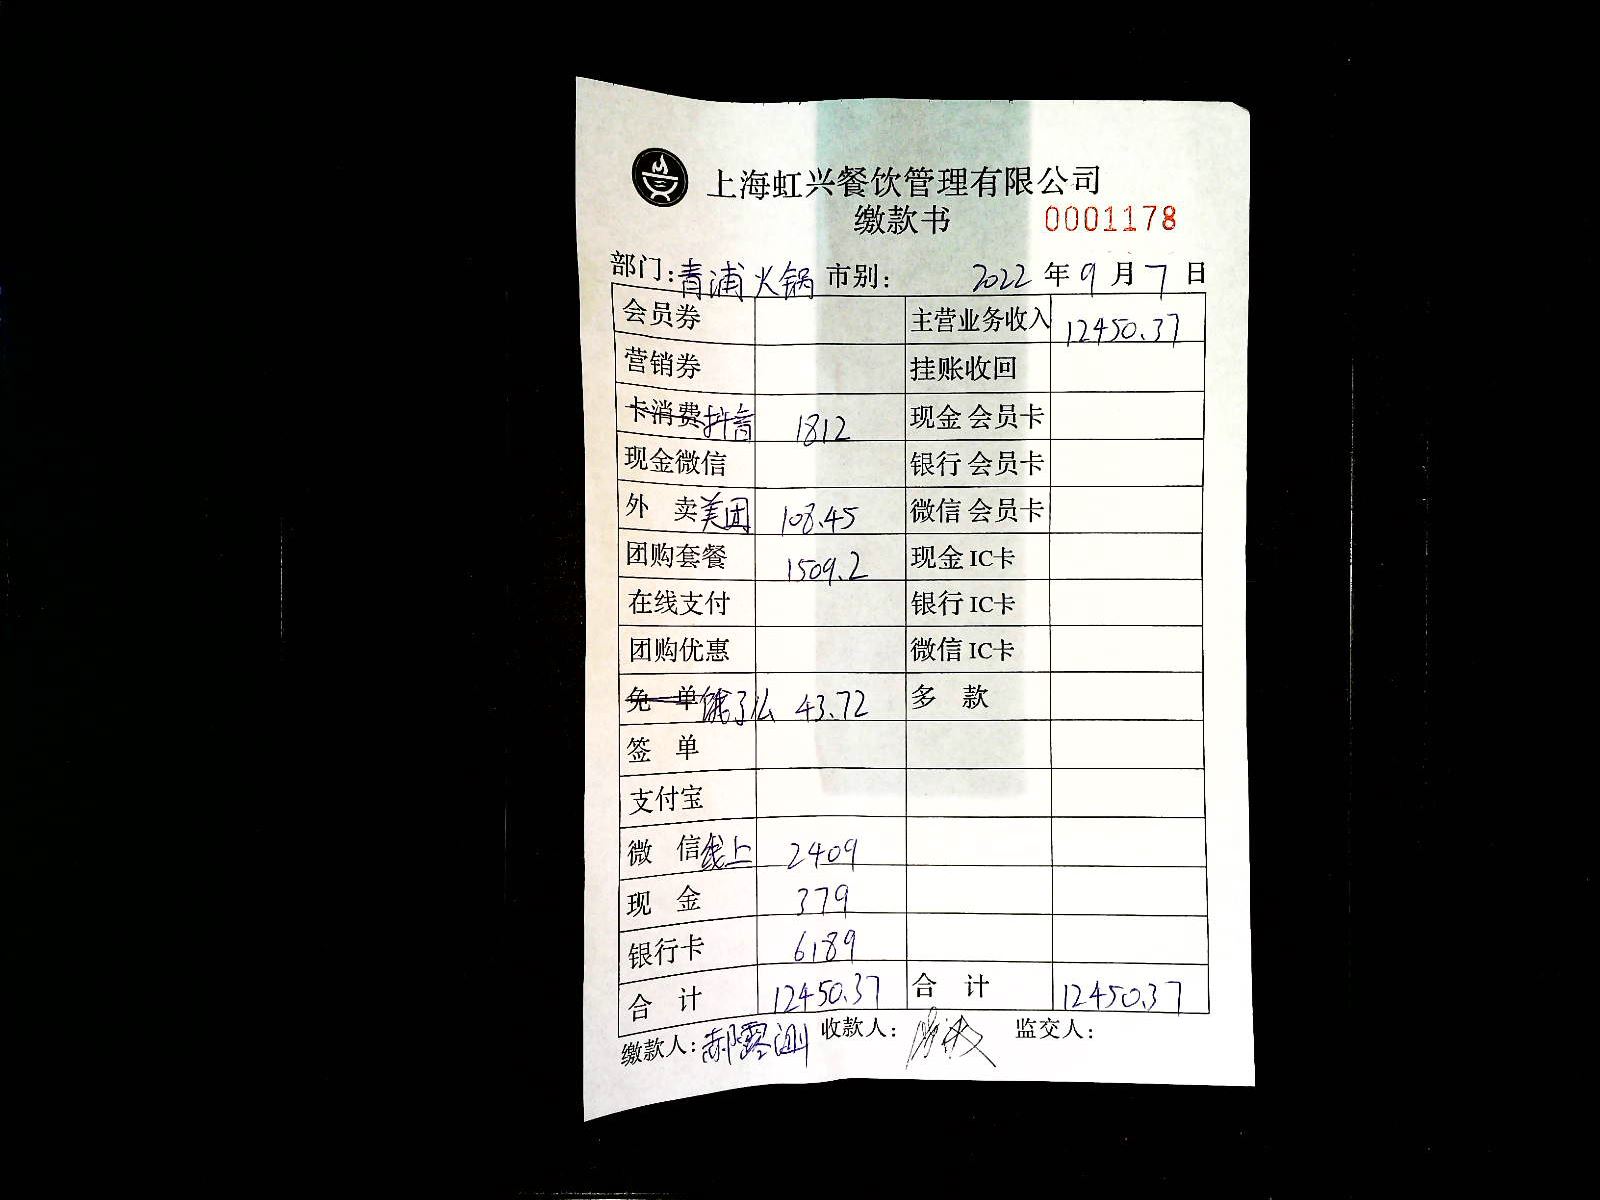 上海虹兴餐饮管理有限公司
缴款书 0001178
部门:青浦火锅 市别: 2022 年 9 月 7 日
会员券 主营业务收入 12450.37
营销券 挂账收回
卡消费抖音 1812 现金 会员卡
现金微信 银行 会员卡
外 卖美团 108.45 微信 会员卡
团购套餐 1509.2 现金 IC卡
在线支付 银行 IC卡
团购优惠 微信 IC卡
免 单饿了么 43.72 多 款
签 单
支付宝
微 信线上 2409
现 金 379
银行卡 6189
合 计 12450.37 合 计 12450.37
缴款人:郝露 收款人: 监交人: